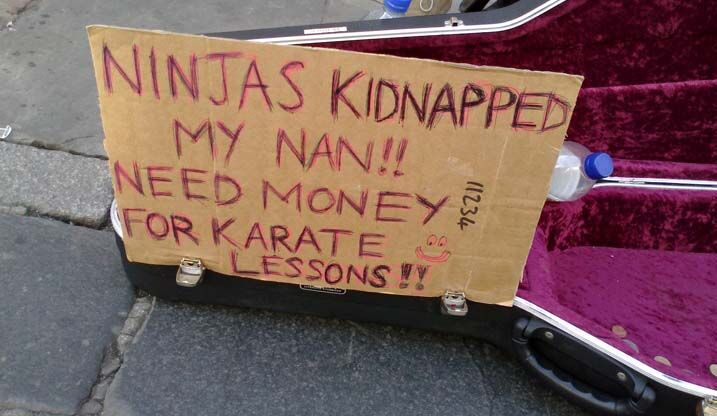 NINJAS KIDNAPPED
MY NAN!!
NEED MONEY
FOR KARATE
LESSONS!!
11234